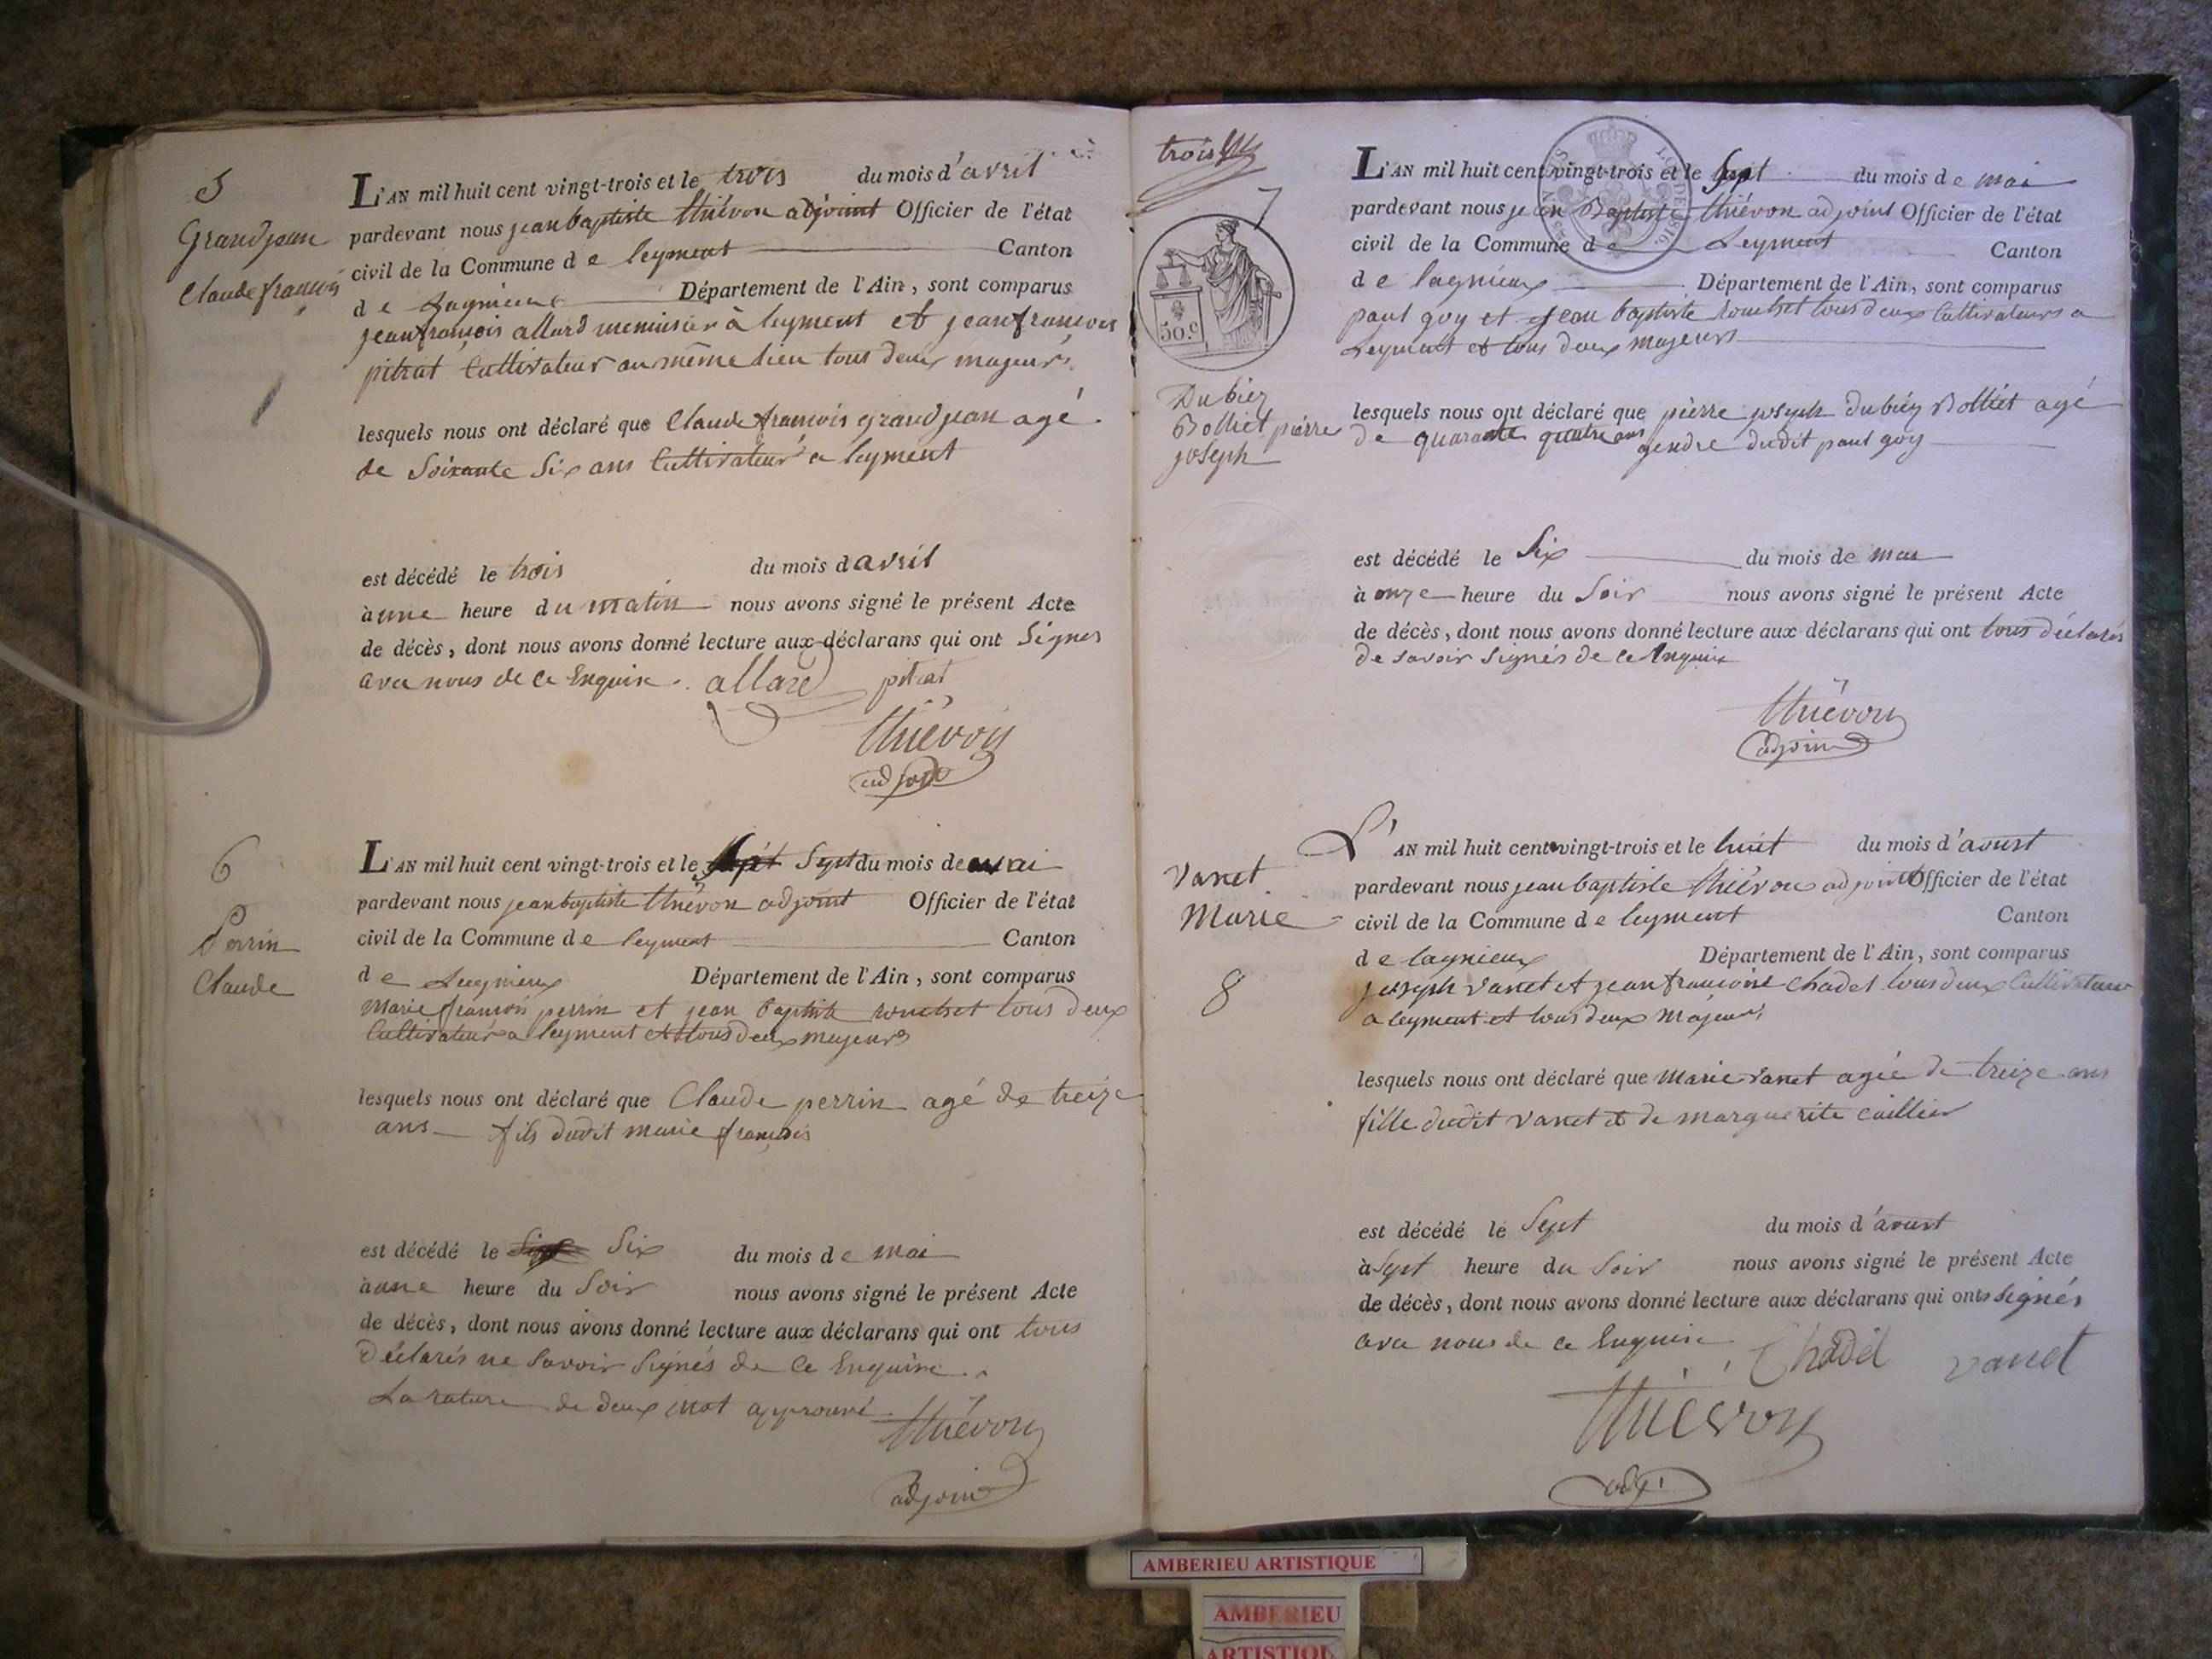 5
Grandjean
Claude françois
L'AN mil huit cent vingt-trois et le trois du mois d'avril
pardevant nous jean baptiste thiévon adjoint Officier de l'état
civil de la Commune de leyment Canton
de Lagnieux Département de l'Ain, sont comparus
jean françois allard menuisier à leyment et jean françois
pitrat Cultivateur au même lieu tous deux majeurs.
lesquels nous ont déclaré que Claude françois grandjean agé
de Soixante Six ans Cultivateur a leyment
est décédé le trois du mois d avril
à une heure du matin nous avons signé le présent Acte
de décès, dont nous avons donné lecture aux déclarans qui ont Signés
avec nous de ce Enquire. allard pitrat
thiévon
adjoint
6
Perrin
Claude
L'AN mil huit cent vingt-trois et le Sept du mois de mai
pardevant nous jean baptiste thiévon adjoint Officier de l'état
civil de la Commune de leyment Canton
de Lagnieux Département de l'Ain, sont comparus
Marie françois perrin et jean baptiste rouchet tous deux
Cultivateurs a leyment et tous deux majeurs
lesquels nous ont déclaré que Claude perrin agé de treize
ans fils dudit marie françois
est décédé le Six du mois de mai
à une heure du Soir nous avons signé le présent Acte
de décès, dont nous avons donné lecture aux déclarans qui ont tous
Déclarés ne Savoir Signés de Ce Enquire.
La rature de deux mot approuvé
thiévon
adjoint
trois
7
50.c
Dubiez
Bolliet pierre
joseph
L'AN mil huit cent vingt-trois et le Sept du mois de mai
pardevant nous jean Baptiste thiévon adjoint Officier de l'état
civil de la Commune de Leyment Canton
de lagnieux Département de l'Ain, sont comparus
paul goy et jean baptiste rouchet tous deux Cultivateurs a
Leyment et tous deux majeurs
lesquels nous ont déclaré que pièrre joseph dubiez Bolliet agé
de quarante quatre ans gendre dudit paul goy
est décédé le Six du mois de mai
à onze heure du Soir nous avons signé le présent Acte
de décès, dont nous avons donné lecture aux déclarans qui ont tous déclarés
de savoir signés de ce Enquire
thiévon
adjoint
Vanet
Marie
8
L'AN mil huit cent vingt-trois et le huit du mois d'avust
pardevant nous jean baptiste thiévon adjoint Officier de l'état
civil de la Commune de leyment Canton
de lagnieux Département de l'Ain, sont comparus
joseph vanet et jean françoise Chadel tous deux Cultivateur
a leyment et tous deux Majeurs
lesquels nous ont déclaré que Marie vanet agée de treize ans
fille dudit vanet et de marguerite caillier
est décédé le Sept du mois d'avust
à Sept heure du Soir nous avons signé le présent Acte
de décès, dont nous avons donné lecture aux déclarans qui ont signés
avec nous de ce Enquire Chadel vanet
thiévon
adj
AMBERIEU ARTISTIQUE
AMBERIEU
ARTISTIQU